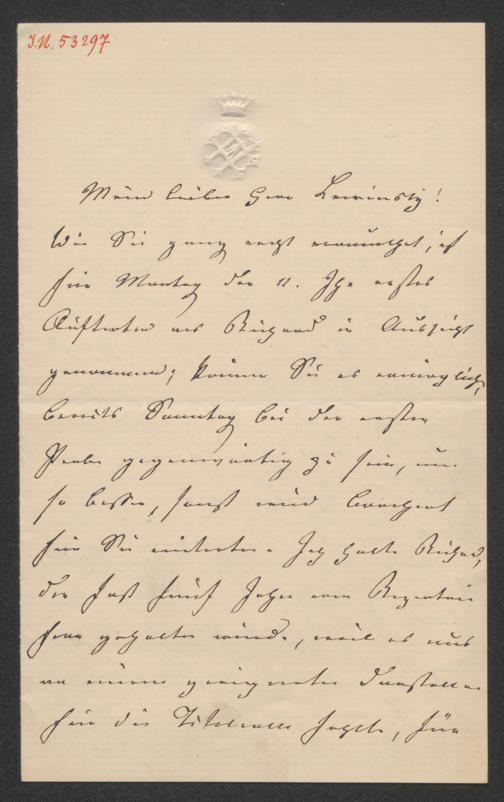 I.N. 53297
Mein lieber Herr Lewinsky!
Wie Sie ganz recht vermuthet, ist
für Montag den 11. Ihr erstes
Auftreten als Richard in Aussicht
genommen; können Sie es ermöglichen,
bereits Sonntag bei der ersten
Probe gegenwärtig zu sein, um
so besser, sonst wird
für Sie eintreten. Ich halte Richard,
der fast fünf Jahre vom Repertoire
fern gehalten wurde, weil es uns
an einem geeigneten Darsteller
für die Titelrolle fehlte, für